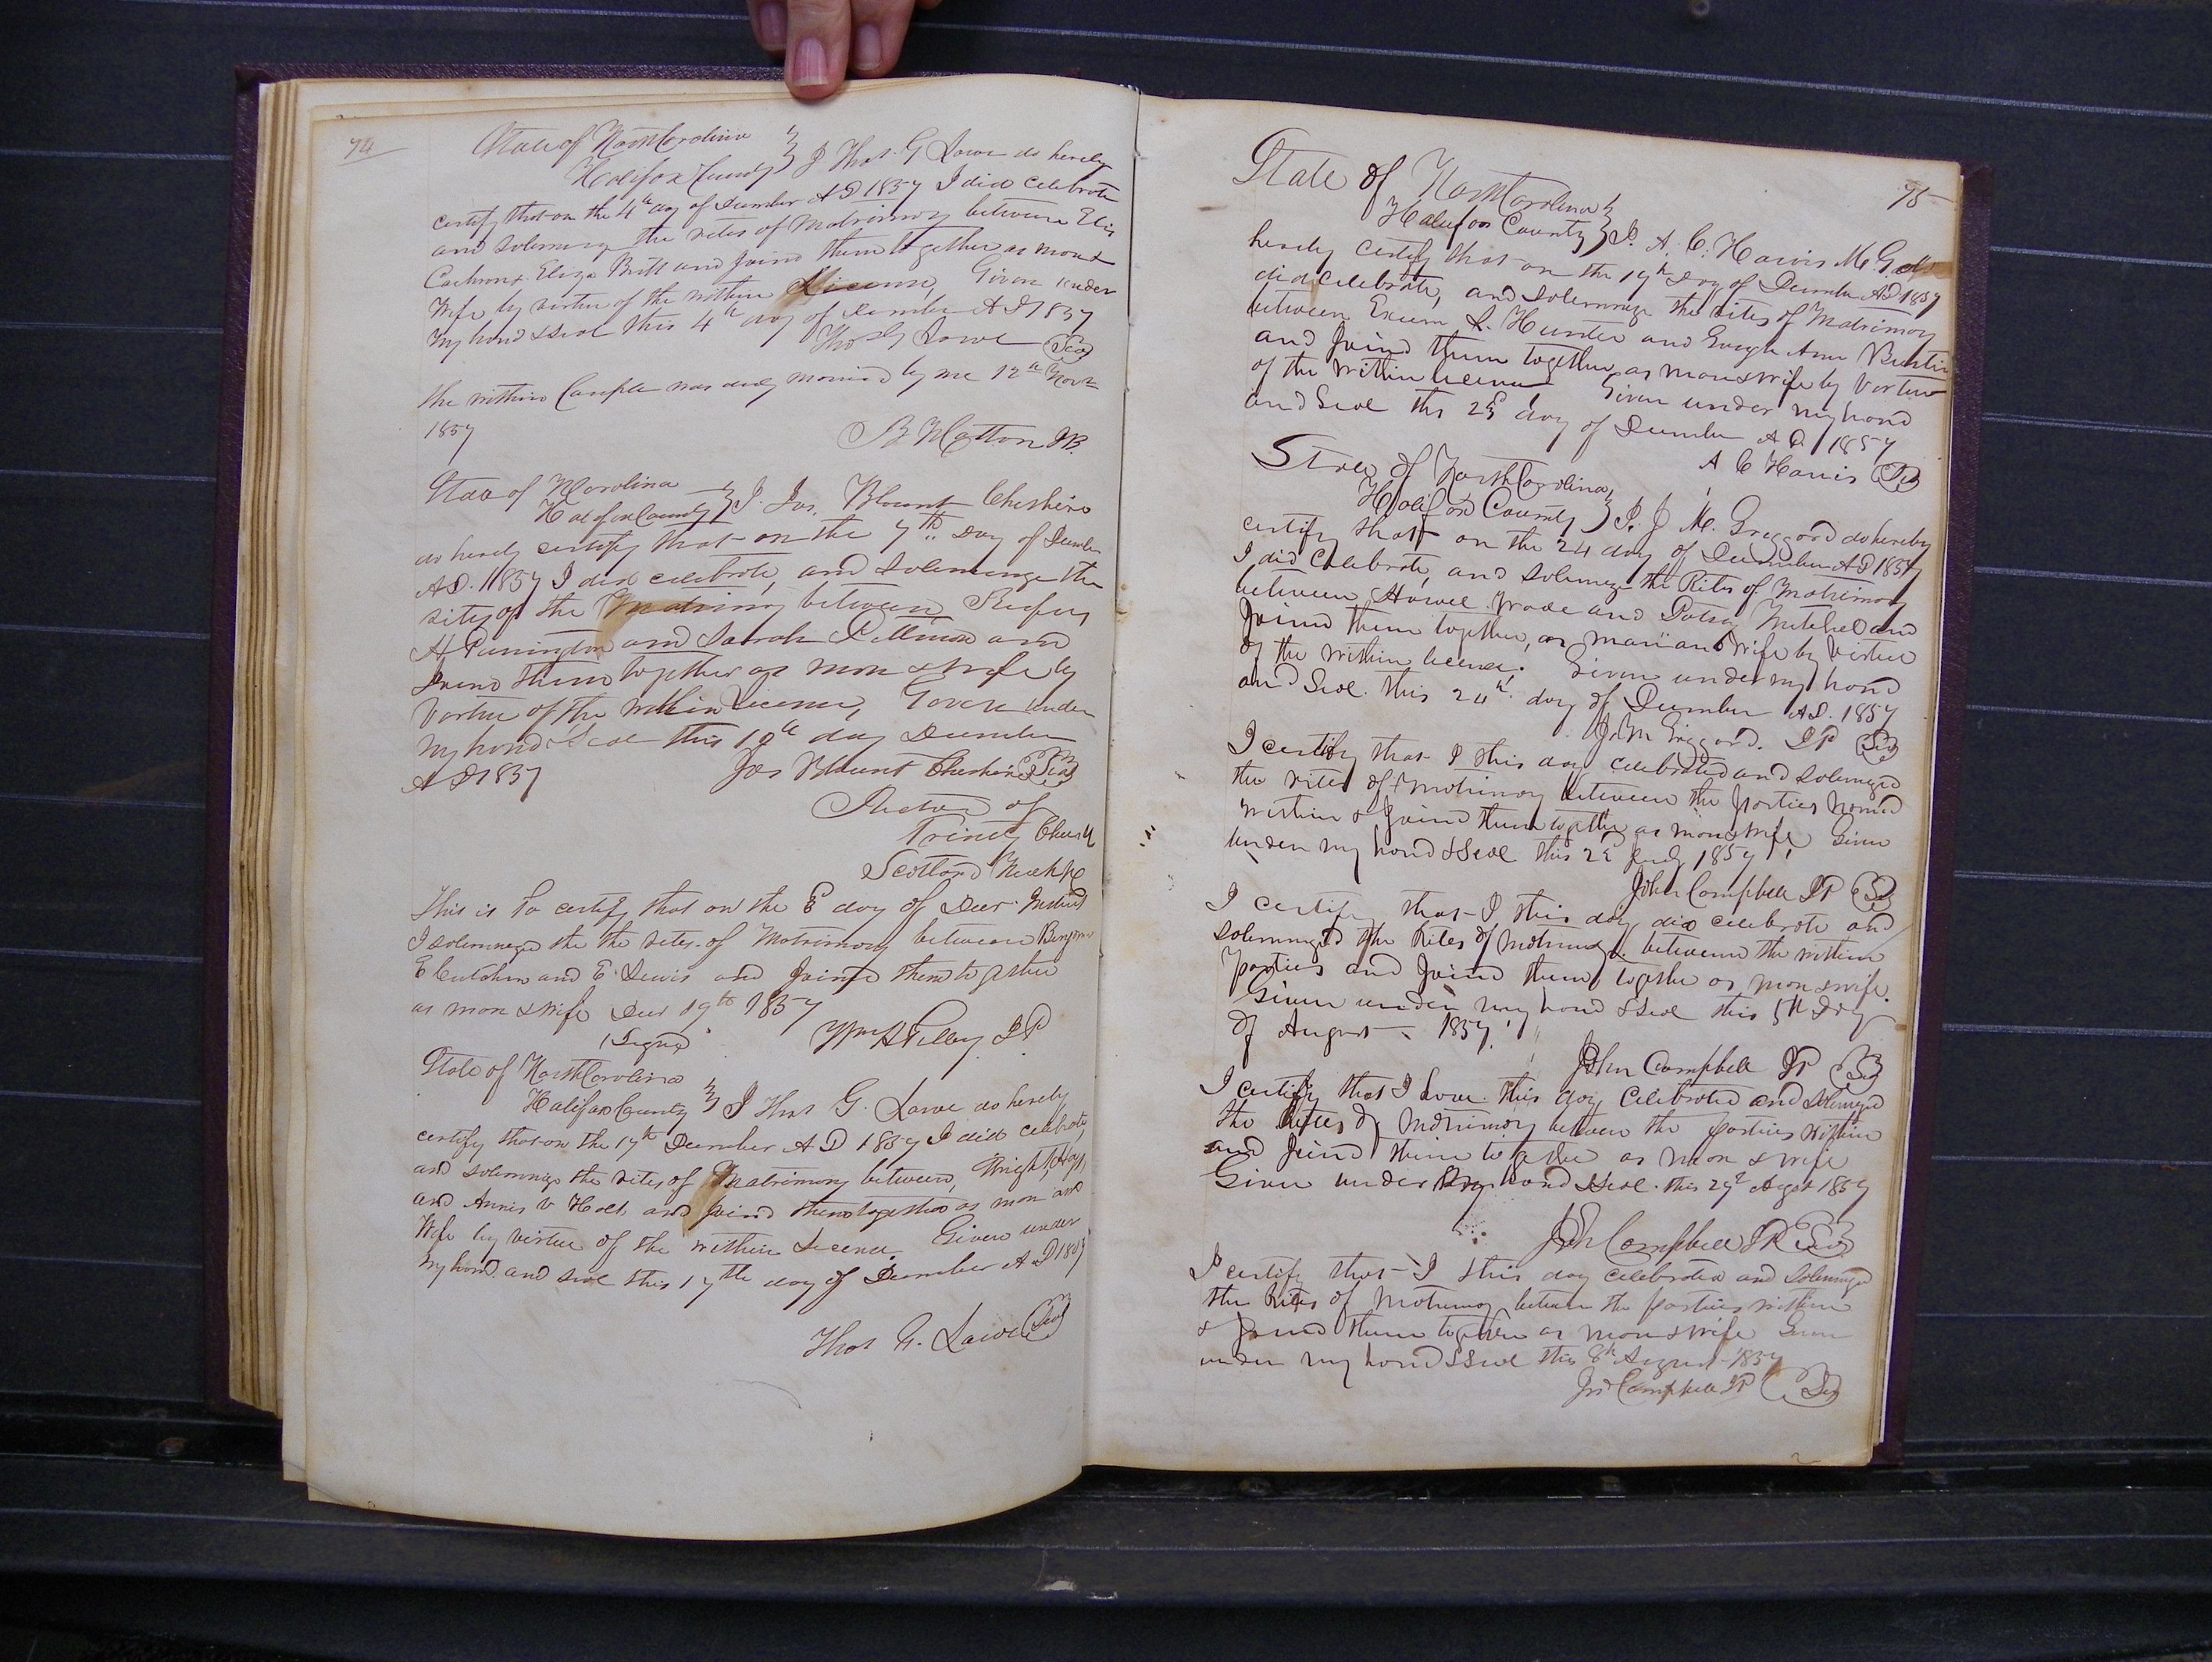 74
State of North Carolina
Halifax County } I Thos. G Lowe do hereby
certify that on the 4th day of December AD 1857 I did celebrate
and solemnize the rites of Matrimony between
& Eliza Britt and joind them together as man &
Wife by virtue of the within License, Given under
My hand & seal this 4th day of December AD 1857
Thos G Lowe Seal
the within Couple was duly married by me 12th Novr
1857
JP.
State of N Carolina
Halifax County } I. Jos. Blount Cheshire
do hereby certify that on the 7th day of Decembr
AD. 1857 I did celebrate, and solemnize the
rites of the Matrimony between, Rufus
H Pennington and Sarah Pittman and
Joind them together as man & wife by
Vertue of the within License, Given under
My hand & Seal this 10th day December
AD 1857 Jos Blount Cheshire Seal
Rector of
Trinity Church
Scotland Neck
This is to certify that on the day of Decr. Instant
I solemnized the the rites of Matrimony between
E and E. Lewis and joined them together
as man & wife Decr 19th 1857
Signed JP
State of North Carolina
Halifax County } I Thos G. Lowe do hereby
certify that on the 17th December AD 1857 I did celebrate,
and solemnize the rites of Matrimony between,
and Annis V Holt and joind them together as man and
Wife by virtue of the within Licence. Given under
My hand. and seal this 17th day of December AD 1857
Thos G. Lowe Seal
75
State of North Carolina
Halifax County } I. A. C. Harris M. G. do
hereby certify that on the 17th day of December AD 1857
did celebrate, and Solemnize the rites of Matrimony
between Exum L. Hunter and Ann
and Joind them together as man & wife by Vertue
of the within licence Given under my hand
and Seal this 23 day of December AD. 1857
A C Harris Seal
State of North Carolina,
Halifax County } I. J. M. Greggord do hereby
certify that on the 24 day of December AD 1857
I did Celebrate, and solemnize the Rites of Matrimony
between Howel Wade and Patsy Mitchel and
Joind them together, as man and wife by Virtue
of the within licence. Given under my hand
and Seal. this 24th. day of December AD. 1857
J. M Greggord. JP Seal
I certify that I this day celebrated and solemnized
the rites of Matrimony between the parties named
within & Joind them together as man & wife, Given
under my hand & Seal this 1857
John Campbell JP Seal
I certify that I this day did celebrate and
solemnized the Rites of matrimony between the within
parties and Joind them together as man & wife.
Given under my hand & Seal this 5th Day
of August 1857.
John Campbell JP Seal
I certify that I have this day Celebrated and Solemnized
the Rites of Matrimony between the parties within
and Joind them together as man & wife
Given under my hand & Seal. this 29th Augst 1857
John Campbell JP Seal
I certify that I this day celebrated and Solemnized
the Rites of Matrimony between the parties within
& Joind them together as man & wife Given
under my hand & Seal this 8th August 1857
Jno Campbell JP Seal